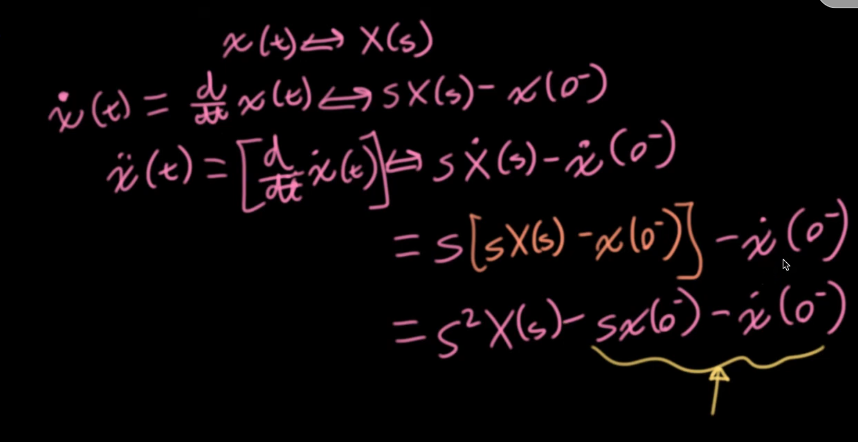 x(t) ⇔ X(s)
ẋ(t) = d/dt x(t) ⇔ sX(s) - x(0⁻)
ẍ(t) = [d/dt ẋ(t)] ⇔ sẊ(s) - ẋ(0⁻)
= s[sX(s) - x(0⁻)] - ẋ(0⁻)
= s²X(s) - sx(0⁻) - ẋ(0⁻)